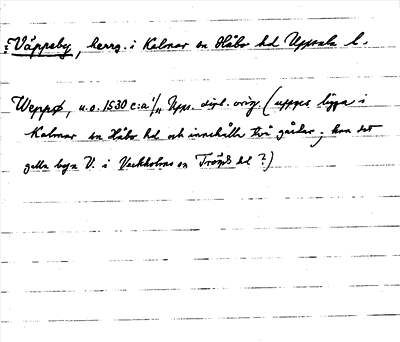 : Väppeby, herrg. i Kalmar sn Håbo hd Uppsala l.
Weppø, u.o. 1530 c:a 1/11 Upps. dipl. orig. (uppges ligga i
Kalmar sn Håbo hd och innehålla två gårdar; kan det
gälla byn V. i Veckholms sn Trögds hd?)